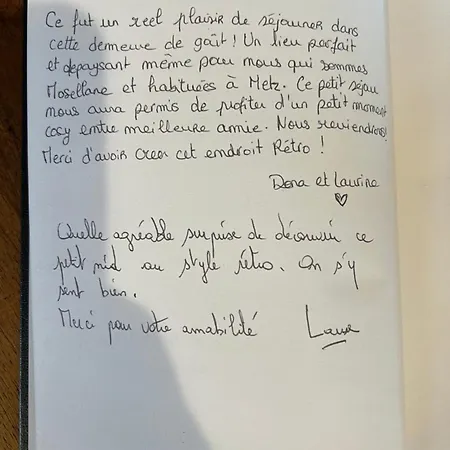 Ce fut un reel plaisir de séjourner dans
cette demeure de goût ! Un lieu parfait
et depaysant même pour nous qui sommes
Mosellane et habituées à Metz. Ce petit séjour
nous aura permis de profiter d'un petit moment
cosy entre meilleure amie. Nous reviendrons !
Merci d'avoir creer cet endroit Rétro !
Dena et Laurine
♡
Quelle agréable surprise de découvrir ce
petit nid au style rétro. On s'y
sent bien.
Merci pour votre amabilité
Laura